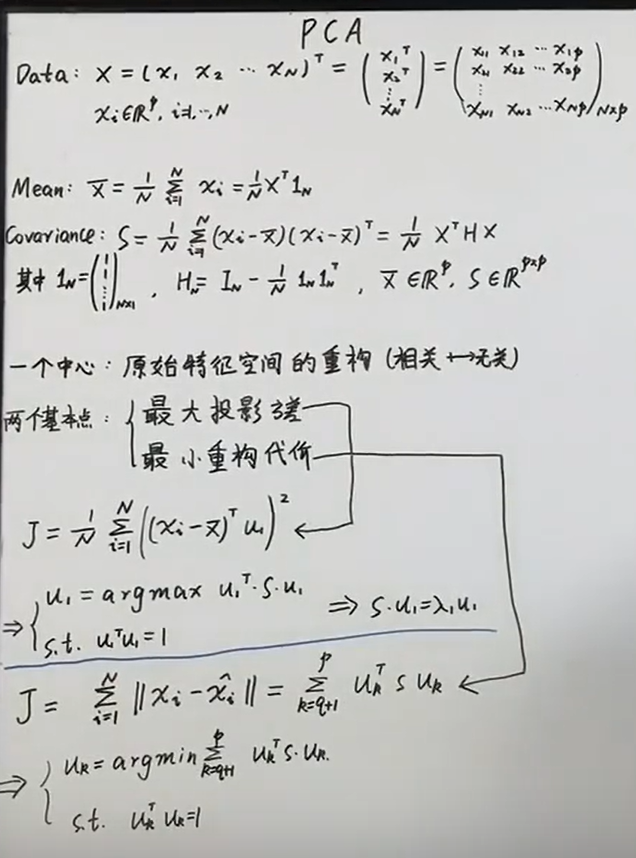 PCA
Data: X = (x₁ x₂ ⋯ x_N)ᵀ = (x₁ᵀ x₂ᵀ ⋮ x_Nᵀ) = (x₁₁ x₁₂ ⋯ x₁p x₂₁ x₂₂ ⋯ x₂p ⋮ x_N1 x_N2 ⋯ x_Np)_N×p
xᵢ∈ℝᵖ, i=1,⋯,N
Mean: x̄ = 1/N Σ_{i=1}^{N} xᵢ = 1/N Xᵀ1_N
Covariance: S = 1/N Σ_{i=1}^{N} (xᵢ-x̄)(xᵢ-x̄)ᵀ = 1/N XᵀHX
其中 1_N = (1 1 ⋮ 1)_N×1 , H_N = I_N - 1/N 1_N 1_Nᵀ , x̄∈ℝᵖ, S∈ℝ^{p×p}
一个中心: 原始特征空间的重构 (相关↔无关)
两个基本点: { 最大投影方差
最小重构代价
J = 1/N Σ_{i=1}^{N} ((xᵢ-x̄)ᵀ u₁)²
⇒ { u₁ = argmax u₁ᵀ·S·u₁ ⇒ S·u₁=λ₁u₁
s.t. u₁ᵀu₁=1
J = Σ_{i=1}^{N} ‖xᵢ-x̂ᵢ‖ = Σ_{k=q+1}^{p} u_kᵀ S u_k
⇒ { u_k = argmin Σ_{k=q+1}^{p} u_kᵀ S·u_k.
s.t. u_kᵀ u_k=1